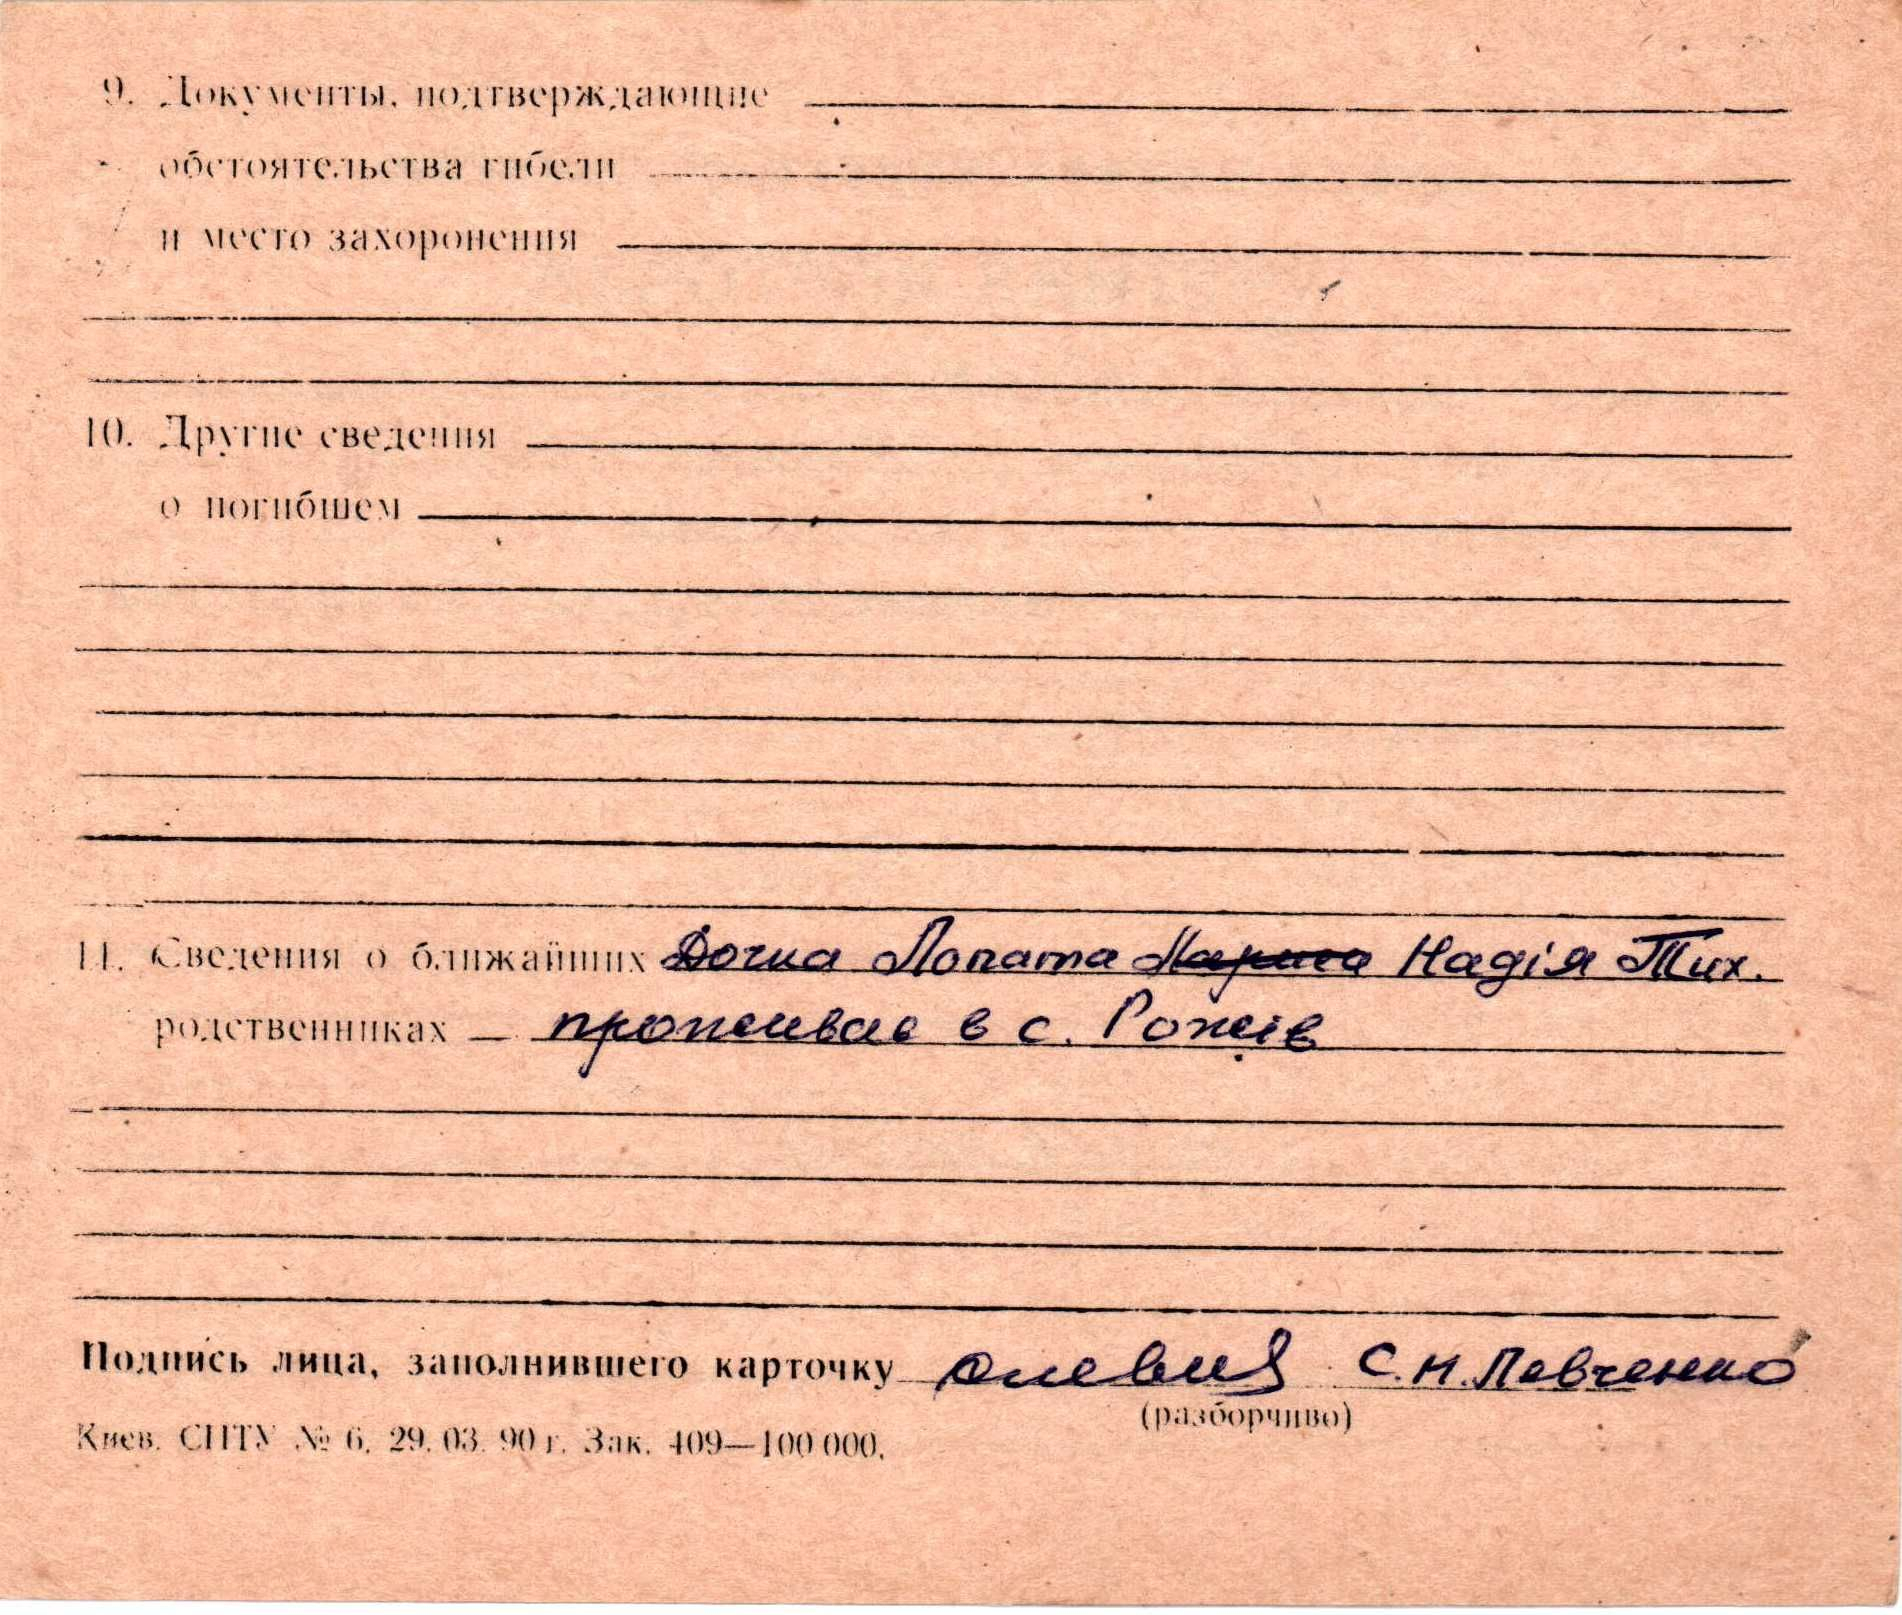 9. Документы, подтверждающие
обстоятельства гибели
и место захоронения
10. Другие сведения
о погибшем
11. Сведения о ближайших Дочка Лопата Надія Тих.
родственниках – проживає в с. Рожів
Подпись лица, заполнившего карточку С.Н. Левченко
(разборчиво)
Киев. СПТУ № 6. 29. 03. 90 г. Зак. 409—100 000.